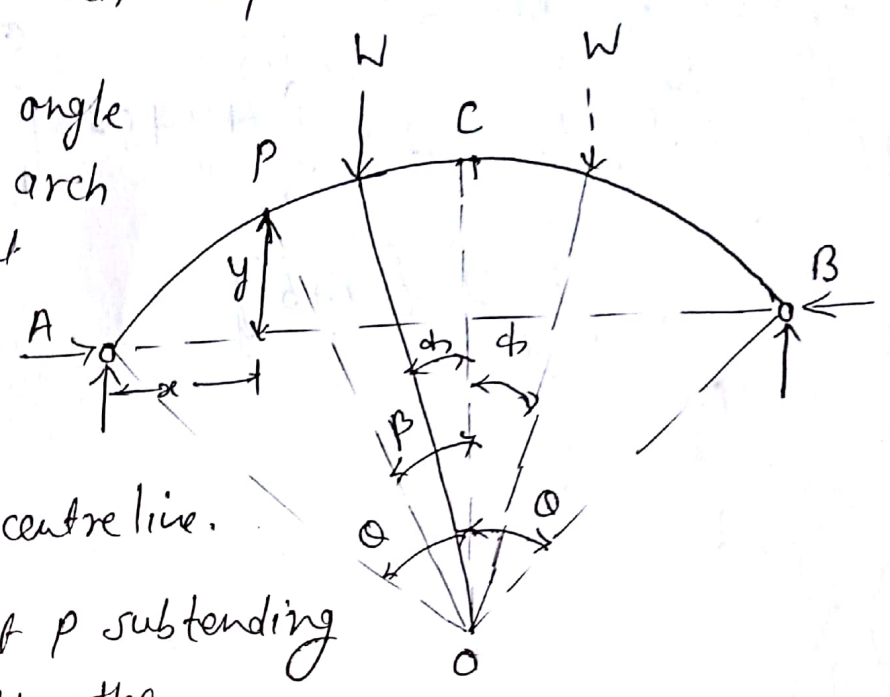 W W
angle
C
P
arch
y
B
A
x
ϕ ϕ
β
centre line.
θ θ
P subtending
O